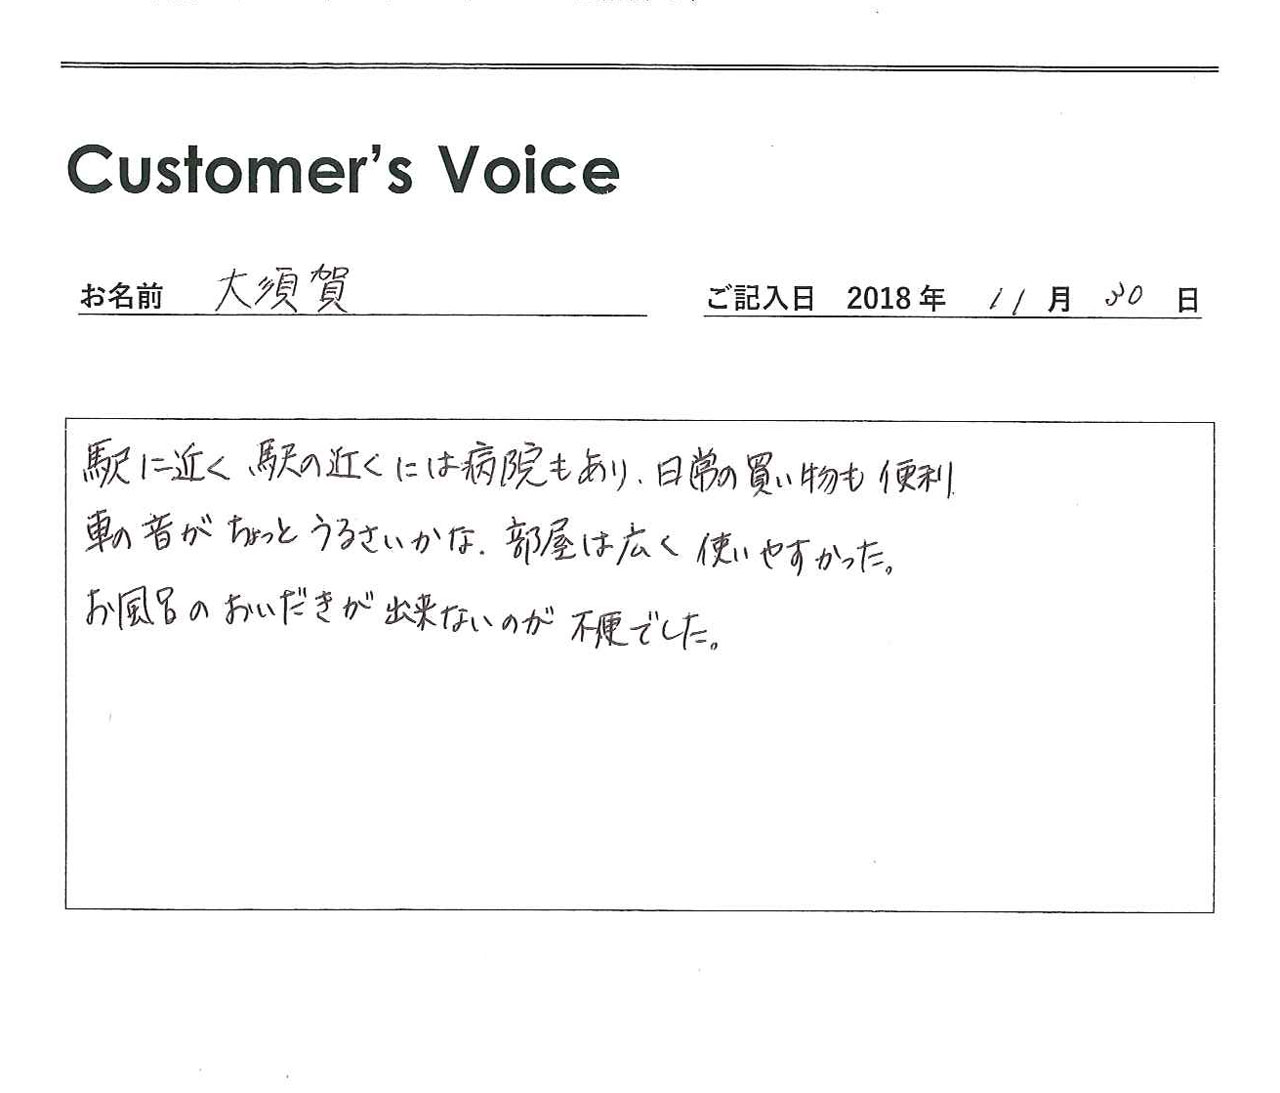 Customer's Voice
お名前 大須賀 ご記入日 2018年 11月 30日
駅に近く、駅の近くには病院もあり、日常の買い物も便利.
車の音がちょっとうるさいかな. 部屋は広く使いやすかった。
お風呂のおいだきが出来ないのが不便でした。